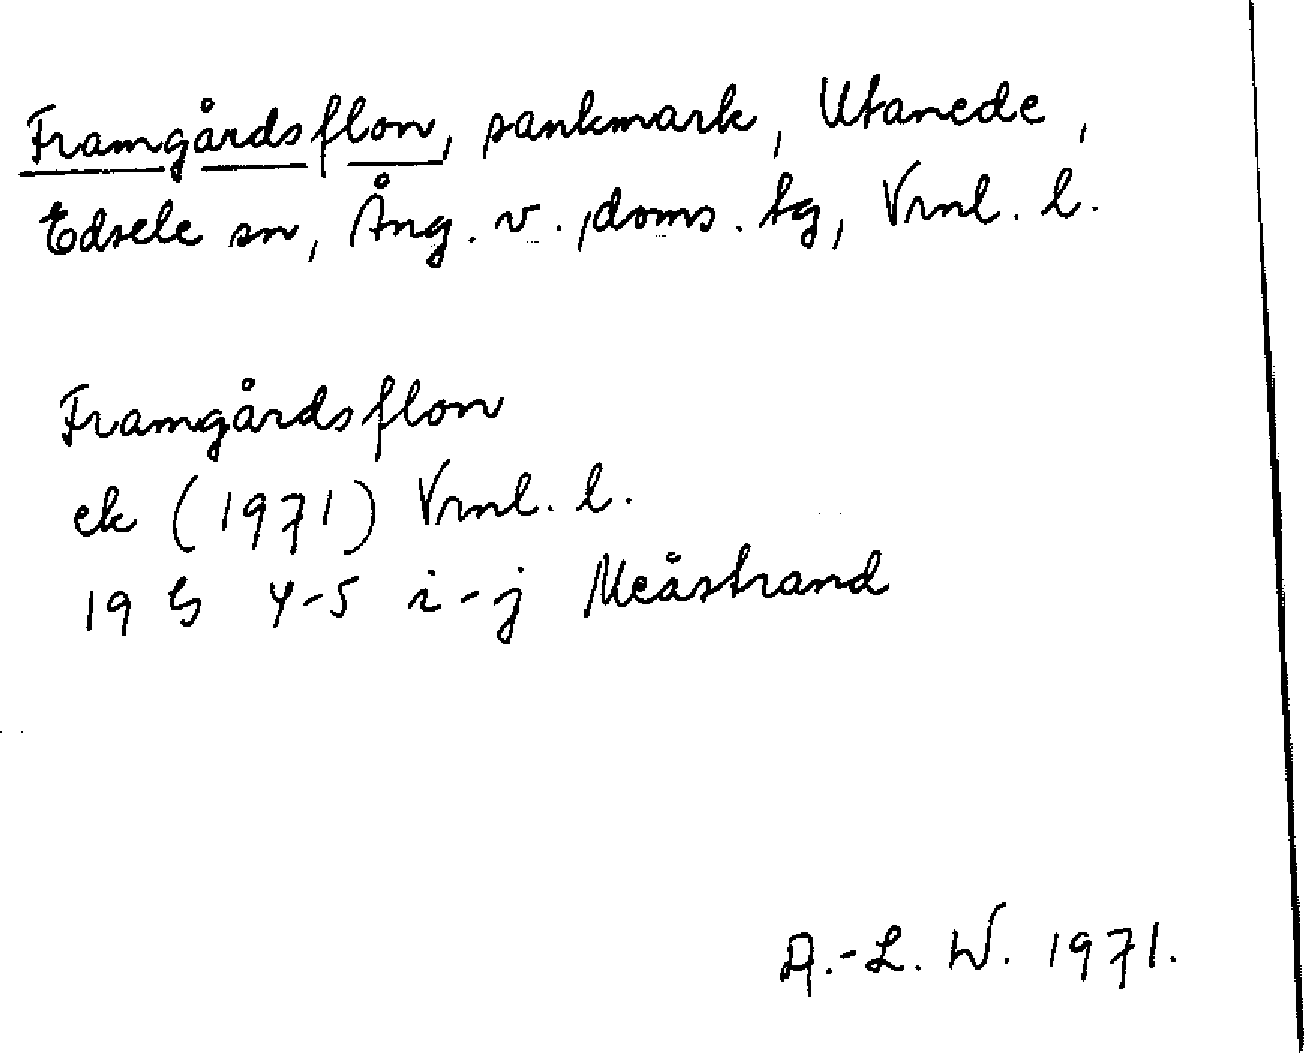 Framgårdsflon, sankmark, Utanede,
Edsele sn, Ång. v. doms. tg, Vrnl. l.
Framgårdsflon
ek (1971) Vrnl. l.
19 G 4-5 i-j Meåstrand
A.-L. W. 1971.